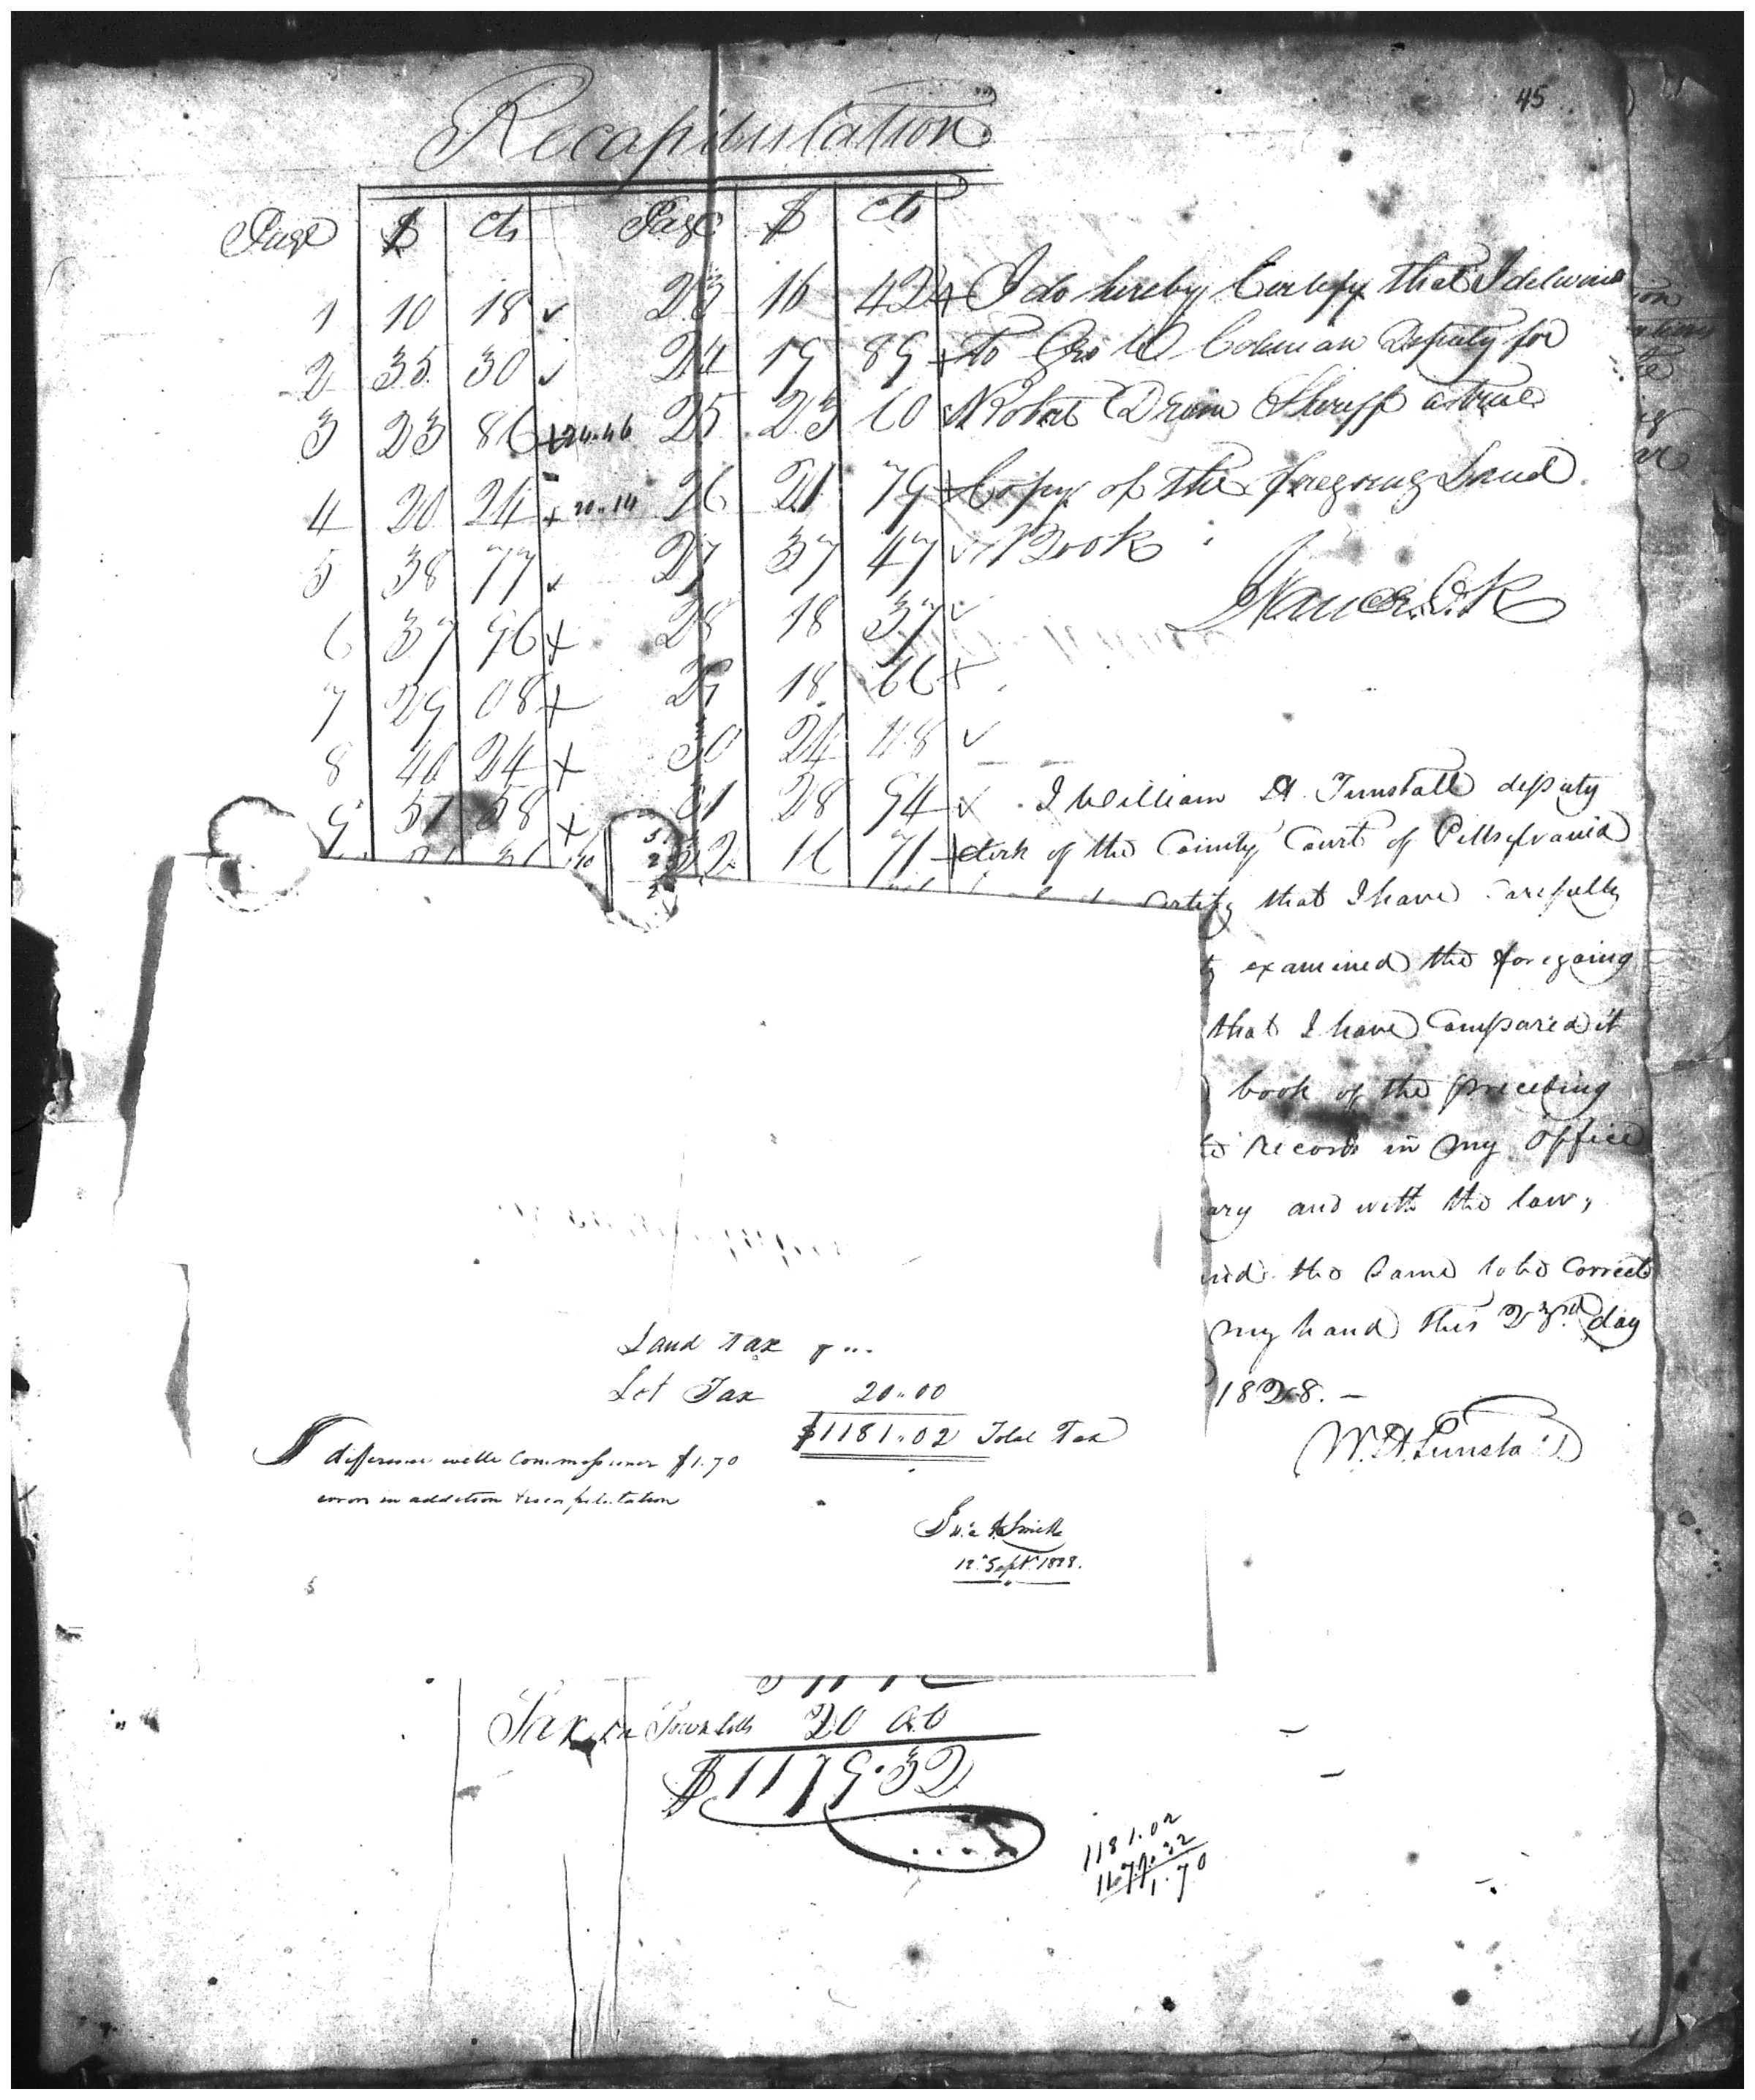 45
Recapitulation
Page $ cts Page $ cts
1 10 18 23 16 42
2 35 30 24 19 89
3 23 86 + 24.46 25 23 60
4 20 24 + 20..14 26 21 79
5 38 77 27 37 47
6 37 96 + 28 18 37
7 29 08 + 29 18 66 +
8 40 24 + 30 24 48
9 57 58 + 31 28 94
32 16 71
I do hereby Certify that I delivered
To Geo W Coleman Deputy for
Sheriff a true
Copy of the foregoing Land
Book
I William H. Tunstall deputy
clerk of the County Court of Pittsylvania
certify that I have Carefully
examined the foregoing
that I have Compared it
book of the preceding
records in my office
ary and with the law,
the Same to be Correct
my hand this 23rd day
1828. —
W. H. Tunstall
Land Tax
Lot Tax 20..00
$1181..02 Total Tax
difference with Commissioner $1.70
error in addition & recapitulation
Smith
12 Sept 1828.
Tax on Town lotts 20 00
$1179.32
1181.02
1179.32
1.70